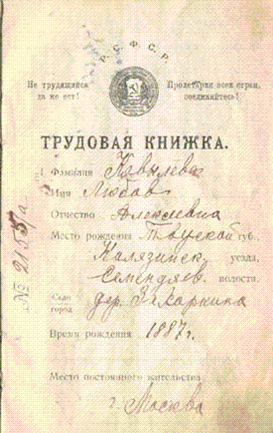 Р. С. Ф. С. Р.
Не трудящийся да не ест!
Пролетарии всех стран, соединяйтесь!
ТРУДОВАЯ КНИЖКА.
№ 2155/а
Фамилия
Имя Любовь
Отчество Алексеевна
Место рождения Тверской губ.,
Калязинск. уезда,
Семендяев. волости,
Село город дер.
Время рождения 1887 г.
Место постоянного жительства
г. Москва